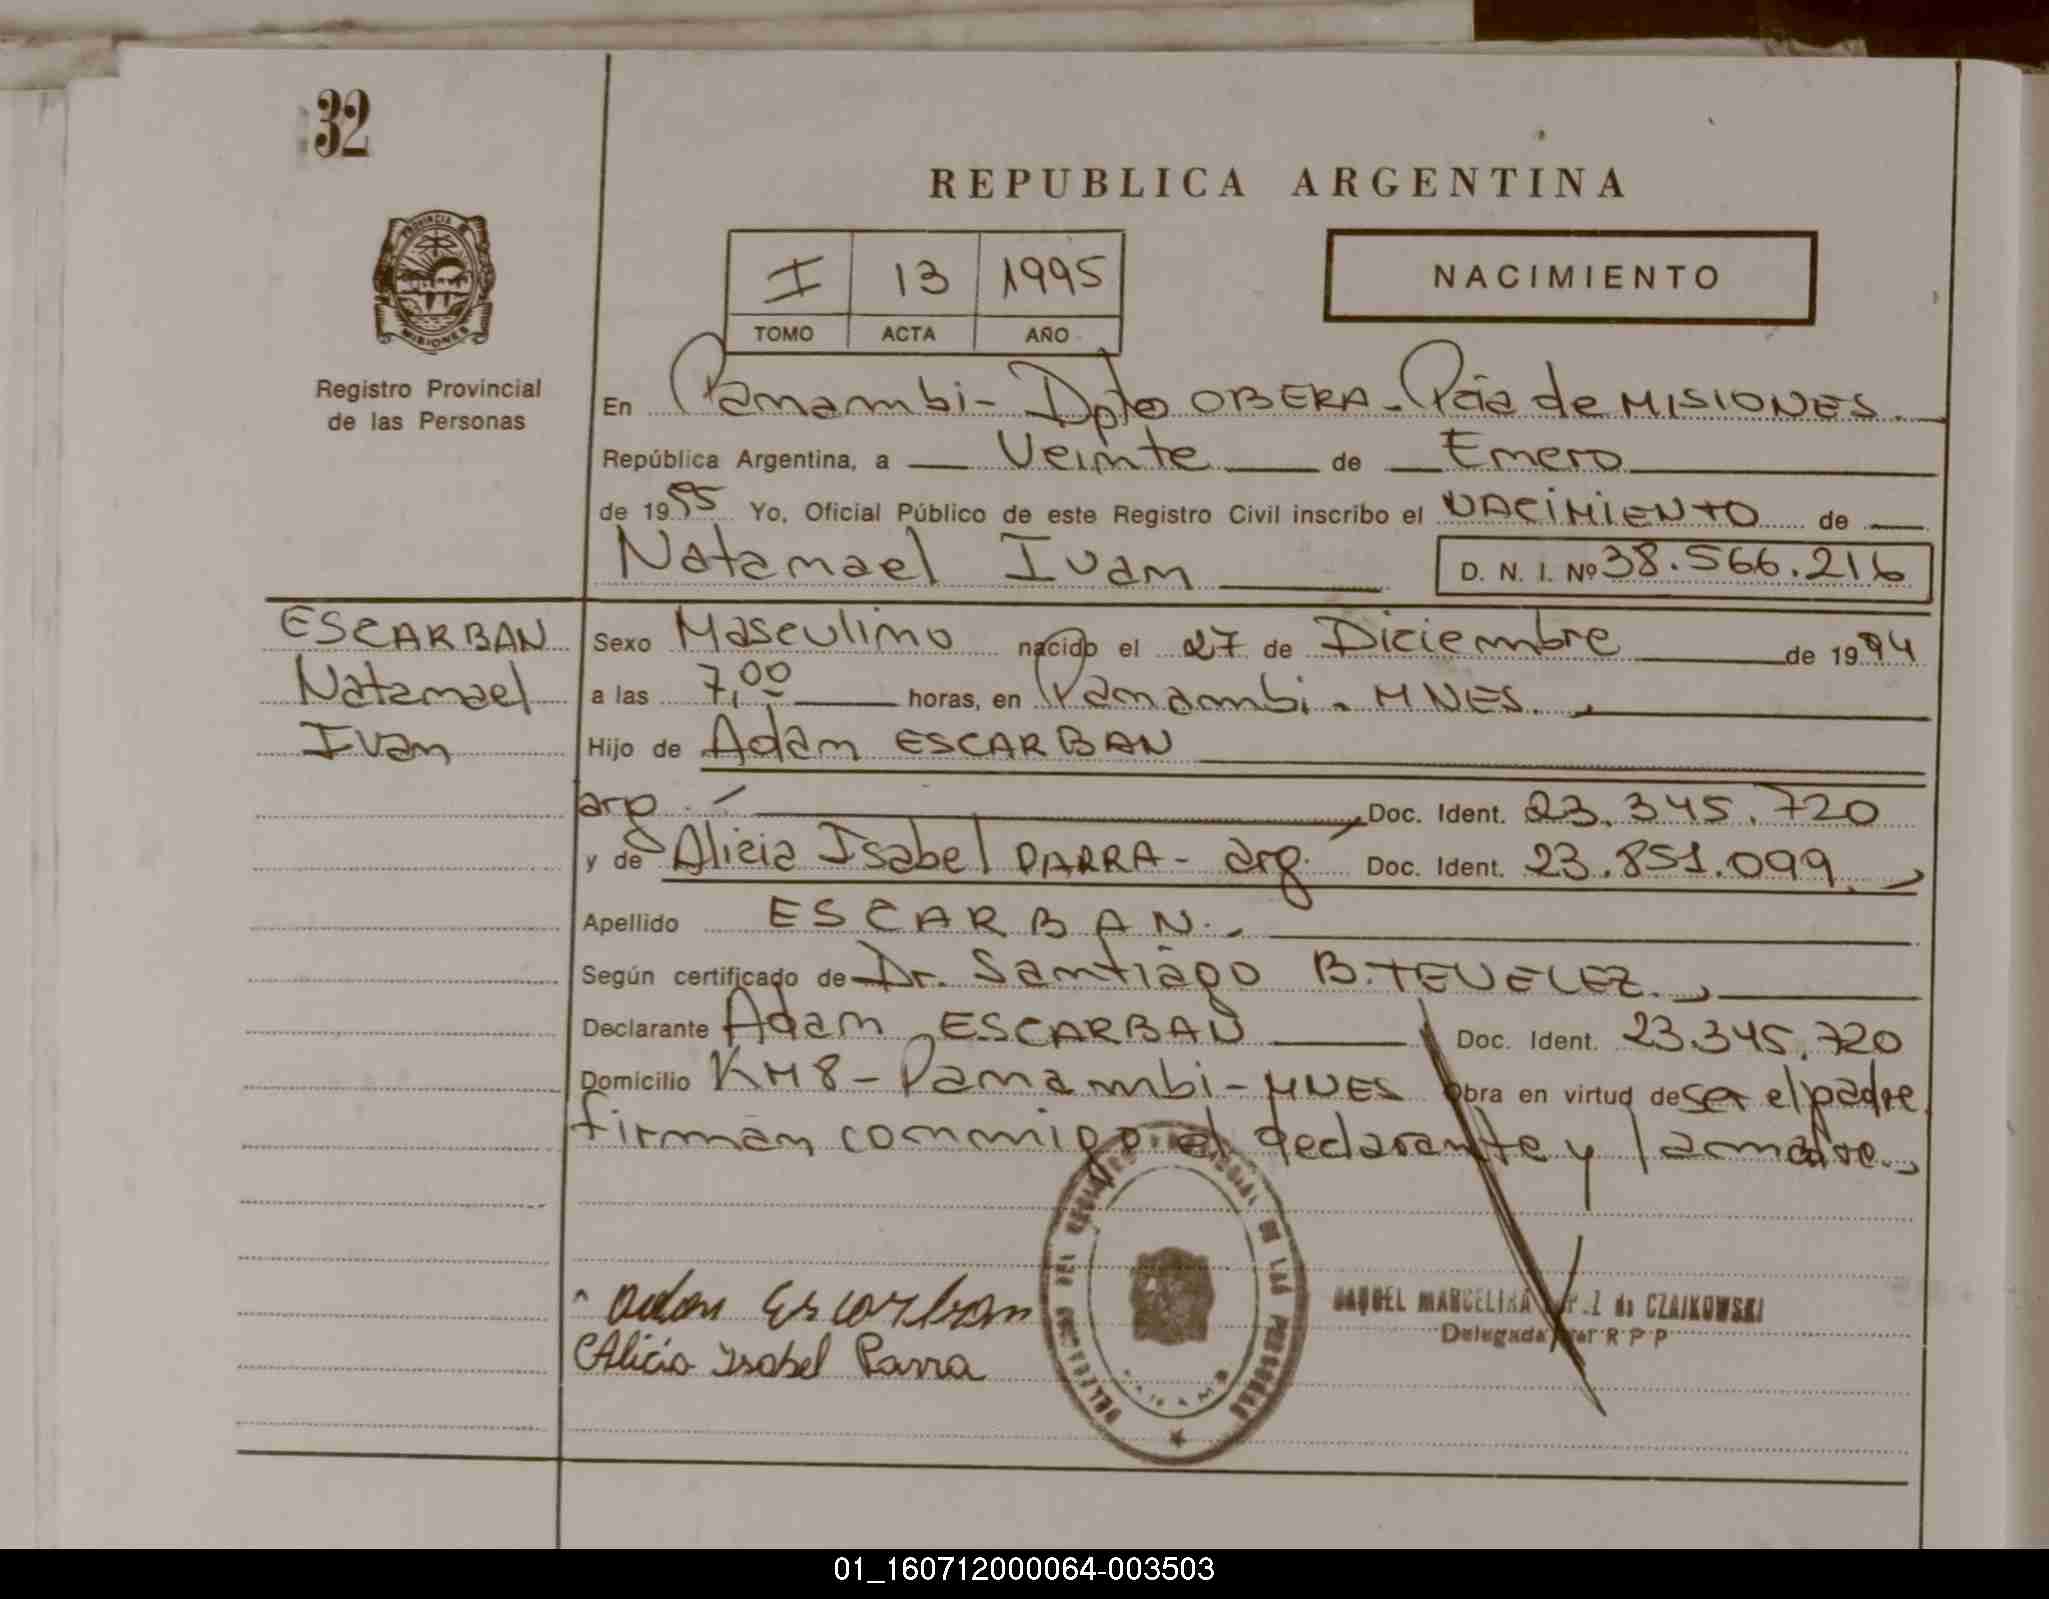 32
REPUBLICA ARGENTINA
PROVINCIA DE
MISIONES
Registro Provincial
de las Personas
I 13 1995
TOMO ACTA AÑO
NACIMIENTO
En Panambi - Dpto OBERA - Pcia de MISIONES
República Argentina, a Veinte de Enero
de 1995 Yo, Oficial Público de este Registro Civil inscribo el NACIMIENTO de
Natanael Ivan D. N. I. Nº 38.566.216
ESCARBAN
Natanael
Ivan
Sexo Masculino nacido el 27 de Diciembre de 1994
a las 7,00 horas, en Panambi - MNES.
Hijo de Adan ESCARBAN
arg. Doc. Ident. 23.345.720
y de Alicia Isabel PARRA - arg. Doc. Ident. 23.851.099
Apellido ESCARBAN.-
Según certificado de Dr. Santiago B.
Declarante Adan ESCARBAN Doc. Ident. 23.345.720
Domicilio KM 8 - Panambi - MNES Obra en virtud de ser el padre
firman conmigo el declarante y la madre.
Adan Escarban
Alicia Isabel Parra
DEL REGISTRO PROVINCIAL DE LAS PERSONAS
MARCELINA de CZAIKOWSKI
Delegada R P P
01_160712000064-003503